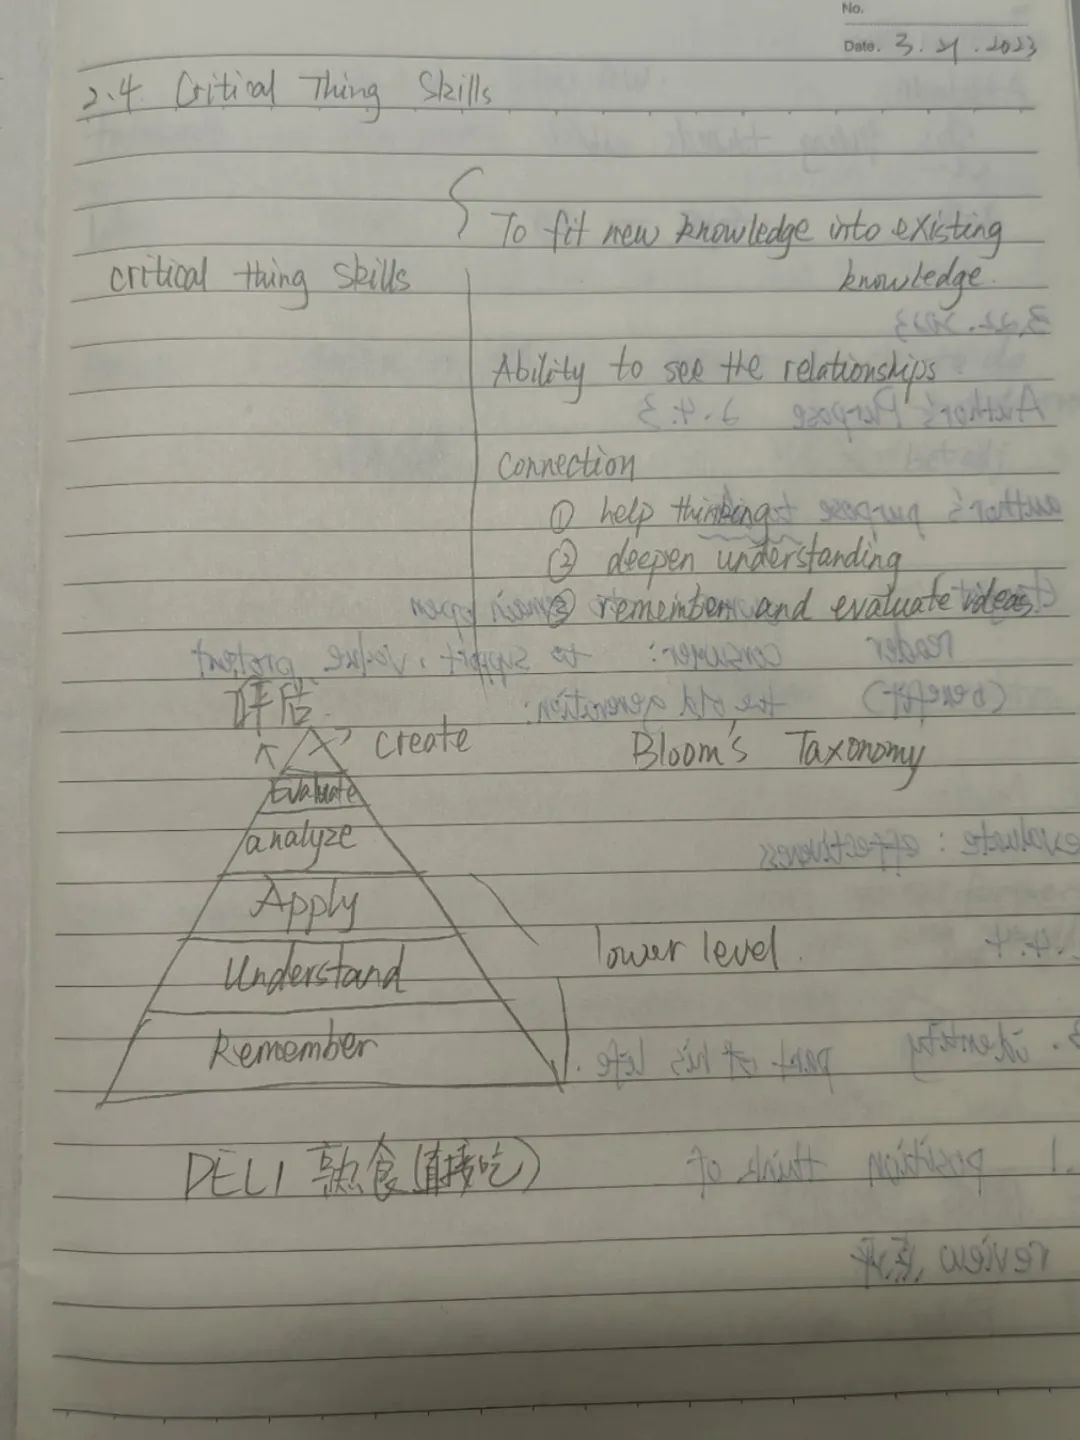 No.
Date. 3. 21. 2023
2.4. Critical Thing Skills
To fit new knowledge into existing
critical thing skills
knowledge.
Ability to see the relationships
Connection
① help thinking
② deepen understanding
③ remember and evaluate ideas
评估
create
Bloom's Taxonomy
Evaluate
analyze
Apply
lower level.
Understand
Remember
DELI 熟食(直接吃)